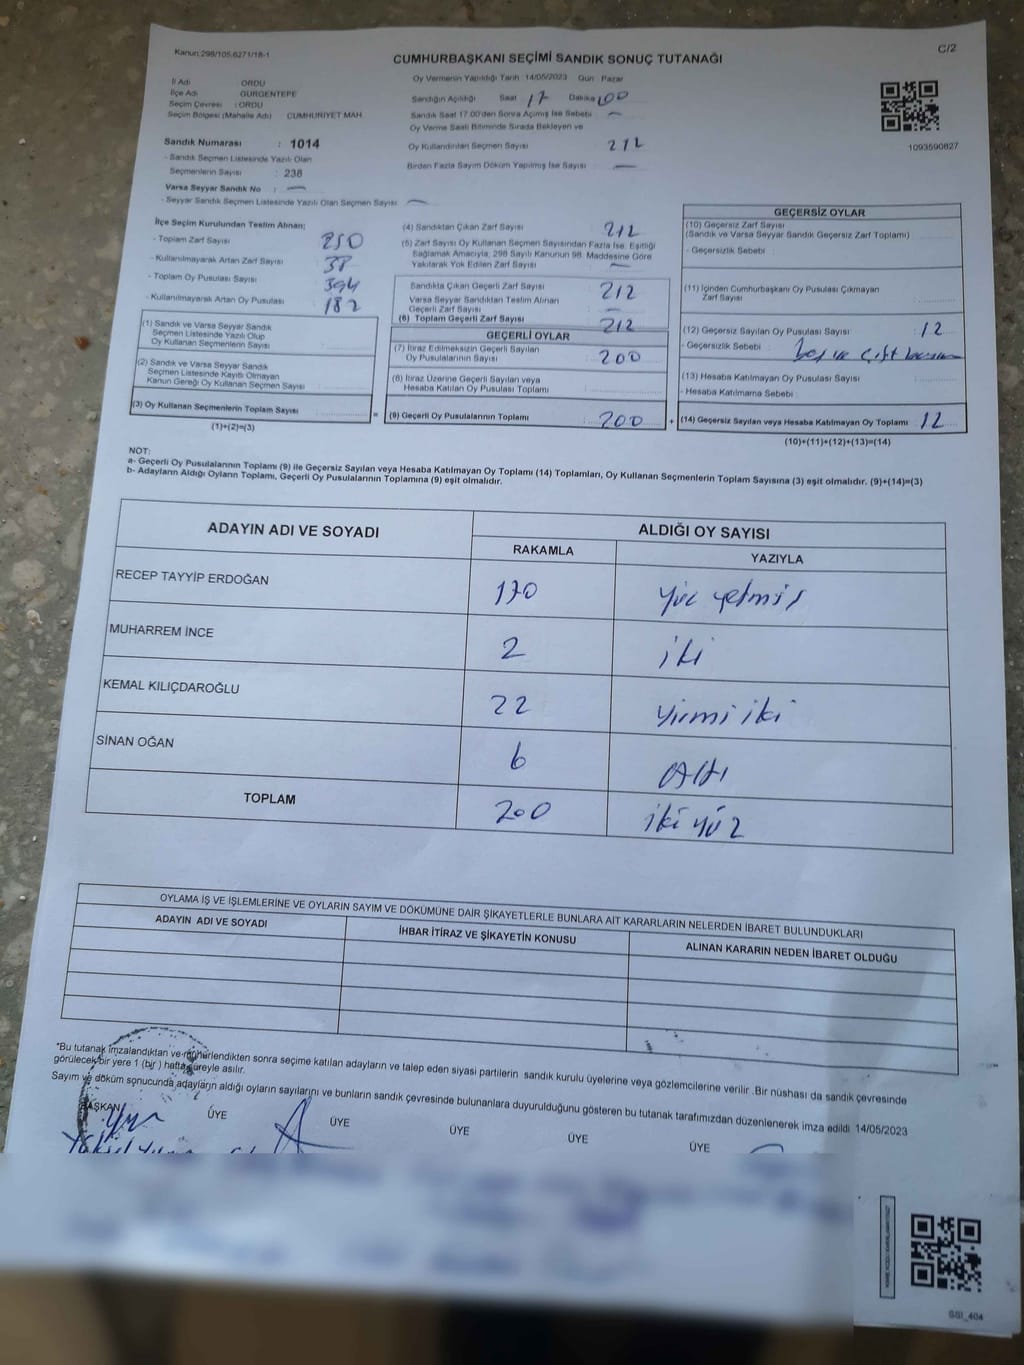 Kanun:298/105.6271/18-1
C/2
CUMHURBAŞKANI SEÇİMİ SANDIK SONUÇ TUTANAĞI
İl Adı : ORDU
İlçe Adı : GÜRGENTEPE
Seçim Çevresi : ORDU
Seçim Bölgesi (Mahalle Adı) CUMHURİYET MAH.
Sandık Numarası : 1014
- Sandık Seçmen Listesinde Yazılı Olan
Seçmenlerin Sayısı : 238
Varsa Seyyar Sandık No : —
- Seyyar Sandık Seçmen Listesinde Yazılı Olan Seçmen Sayısı : —
Oy Vermenin Yapıldığı Tarih 14/05/2023 Gün : Pazar
Sandığın Açıldığı Saat 17 Dakika 00
Sandık Saat 17.00'den Sonra Açımış İse Sebebi —
Oy Verme Saati Bitiminde Sırada Bekleyen ve
Oy Kullandırılan Seçmen Sayısı 212
Birden Fazla Sayım Döküm Yapılmış İse Sayısı —
1093590827
İlçe Seçim Kurulundan Teslim Alınan;
- Toplam Zarf Sayısı 250
- Kullanılmayarak Artan Zarf Sayısı 38
- Toplam Oy Pusulası Sayısı 394
- Kullanılmayarak Artan Oy Pusulası 182
(1) Sandık ve Varsa Seyyar Sandık
Seçmen Listesinde Yazılı Olup
Oy Kullanan Seçmenlerin Sayısı
(2) Sandık ve Varsa Seyyar Sandık
Seçmen Listesinde Kayıtlı Olmayan
Kanun Gereği Oy Kullanan Seçmen Sayısı
(3) Oy Kullanan Seçmenlerin Toplam Sayısı
(1)+(2)=(3)
(4) Sandıktan Çıkan Zarf Sayısı 212
(5) Zarf Sayısı Oy Kullanan Seçmen Sayısından Fazla İse, Eşitliği
Sağlamak Amacıyla, 298 Sayılı Kanunun 98. Maddesine Göre
Yakılarak Yok Edilen Zarf Sayısı —
Sandıkta Çıkan Geçerli Zarf Sayısı 212
Varsa Seyyar Sandıktan Teslim Alınan
Geçerli Zarf Sayısı —
(6) Toplam Geçerli Zarf Sayısı 212
GEÇERLİ OYLAR
(7) İtiraz Edilmeksizin Geçerli Sayılan
Oy Pusulalarının Sayısı 200
(8) İtiraz Üzerine Geçerli Sayılan veya
Hesaba Katılan Oy Pusulası Toplamı
(9) Geçerli Oy Pusulalarının Toplamı 200
GEÇERSİZ OYLAR
(10) Geçersiz Zarf Sayısı
(Sandık ve Varsa Seyyar Sandık Geçersiz Zarf Toplamı)
- Geçersizlik Sebebi
(11) İçinden Cumhurbaşkanı Oy Pusulası Çıkmayan
Zarf Sayısı
(12) Geçersiz Sayılan Oy Pusulası Sayısı 12
- Geçersizlik Sebebi boş ve çift
(13) Hesaba Katılmayan Oy Pusulası Sayısı
- Hesaba Katılmama Sebebi
(14) Geçersiz Sayılan veya Hesaba Katılmayan Oy Toplamı 12
(10)+(11)+(12)+(13)=(14)
NOT:
a- Geçerli Oy Pusulalarının Toplamı (9) ile Geçersiz Sayılan veya Hesaba Katılmayan Oy Toplamı (14) Toplamları, Oy Kullanan Seçmenlerin Toplam Sayısına (3) eşit olmalıdır. (9)+(14)=(3)
b- Adayların Aldığı Oyların Toplamı, Geçerli Oy Pusulalarının Toplamına (9) eşit olmalıdır.
ADAYIN ADI VE SOYADI ALDIĞI OY SAYISI
RAKAMLA YAZIYLA
RECEP TAYYİP ERDOĞAN 170 yüz yetmiş
MUHARREM İNCE 2 iki
KEMAL KILIÇDAROĞLU 22 yirmi iki
SİNAN OĞAN 6 altı
TOPLAM 200 iki yüz
OYLAMA İŞ VE İŞLEMLERİNE VE OYLARIN SAYIM VE DÖKÜMÜNE DAİR ŞİKAYETLERLE BUNLARA AİT KARARLARIN NELERDEN İBARET BULUNDUKLARI
ADAYIN ADI VE SOYADI İHBAR İTİRAZ VE ŞİKAYETİN KONUSU ALINAN KARARIN NEDEN İBARET OLDUĞU
*Bu tutanak imzalandıktan ve mühürlendikten sonra seçime katılan adayların ve talep eden siyasi partilerin sandık kurulu üyelerine veya gözlemcilerine verilir .Bir nüshası da sandık çevresinde
görülecek bir yere 1 (bir ) hafta süreyle asılır.
Sayım ve döküm sonucunda adayların aldığı oyların sayılarını ve bunların sandık çevresinde bulunanlara duyurulduğunu gösteren bu tutanak tarafımızdan düzenlenerek imza edildi 14/05/2023
BAŞKAN ÜYE ÜYE ÜYE ÜYE ÜYE
SSI_404